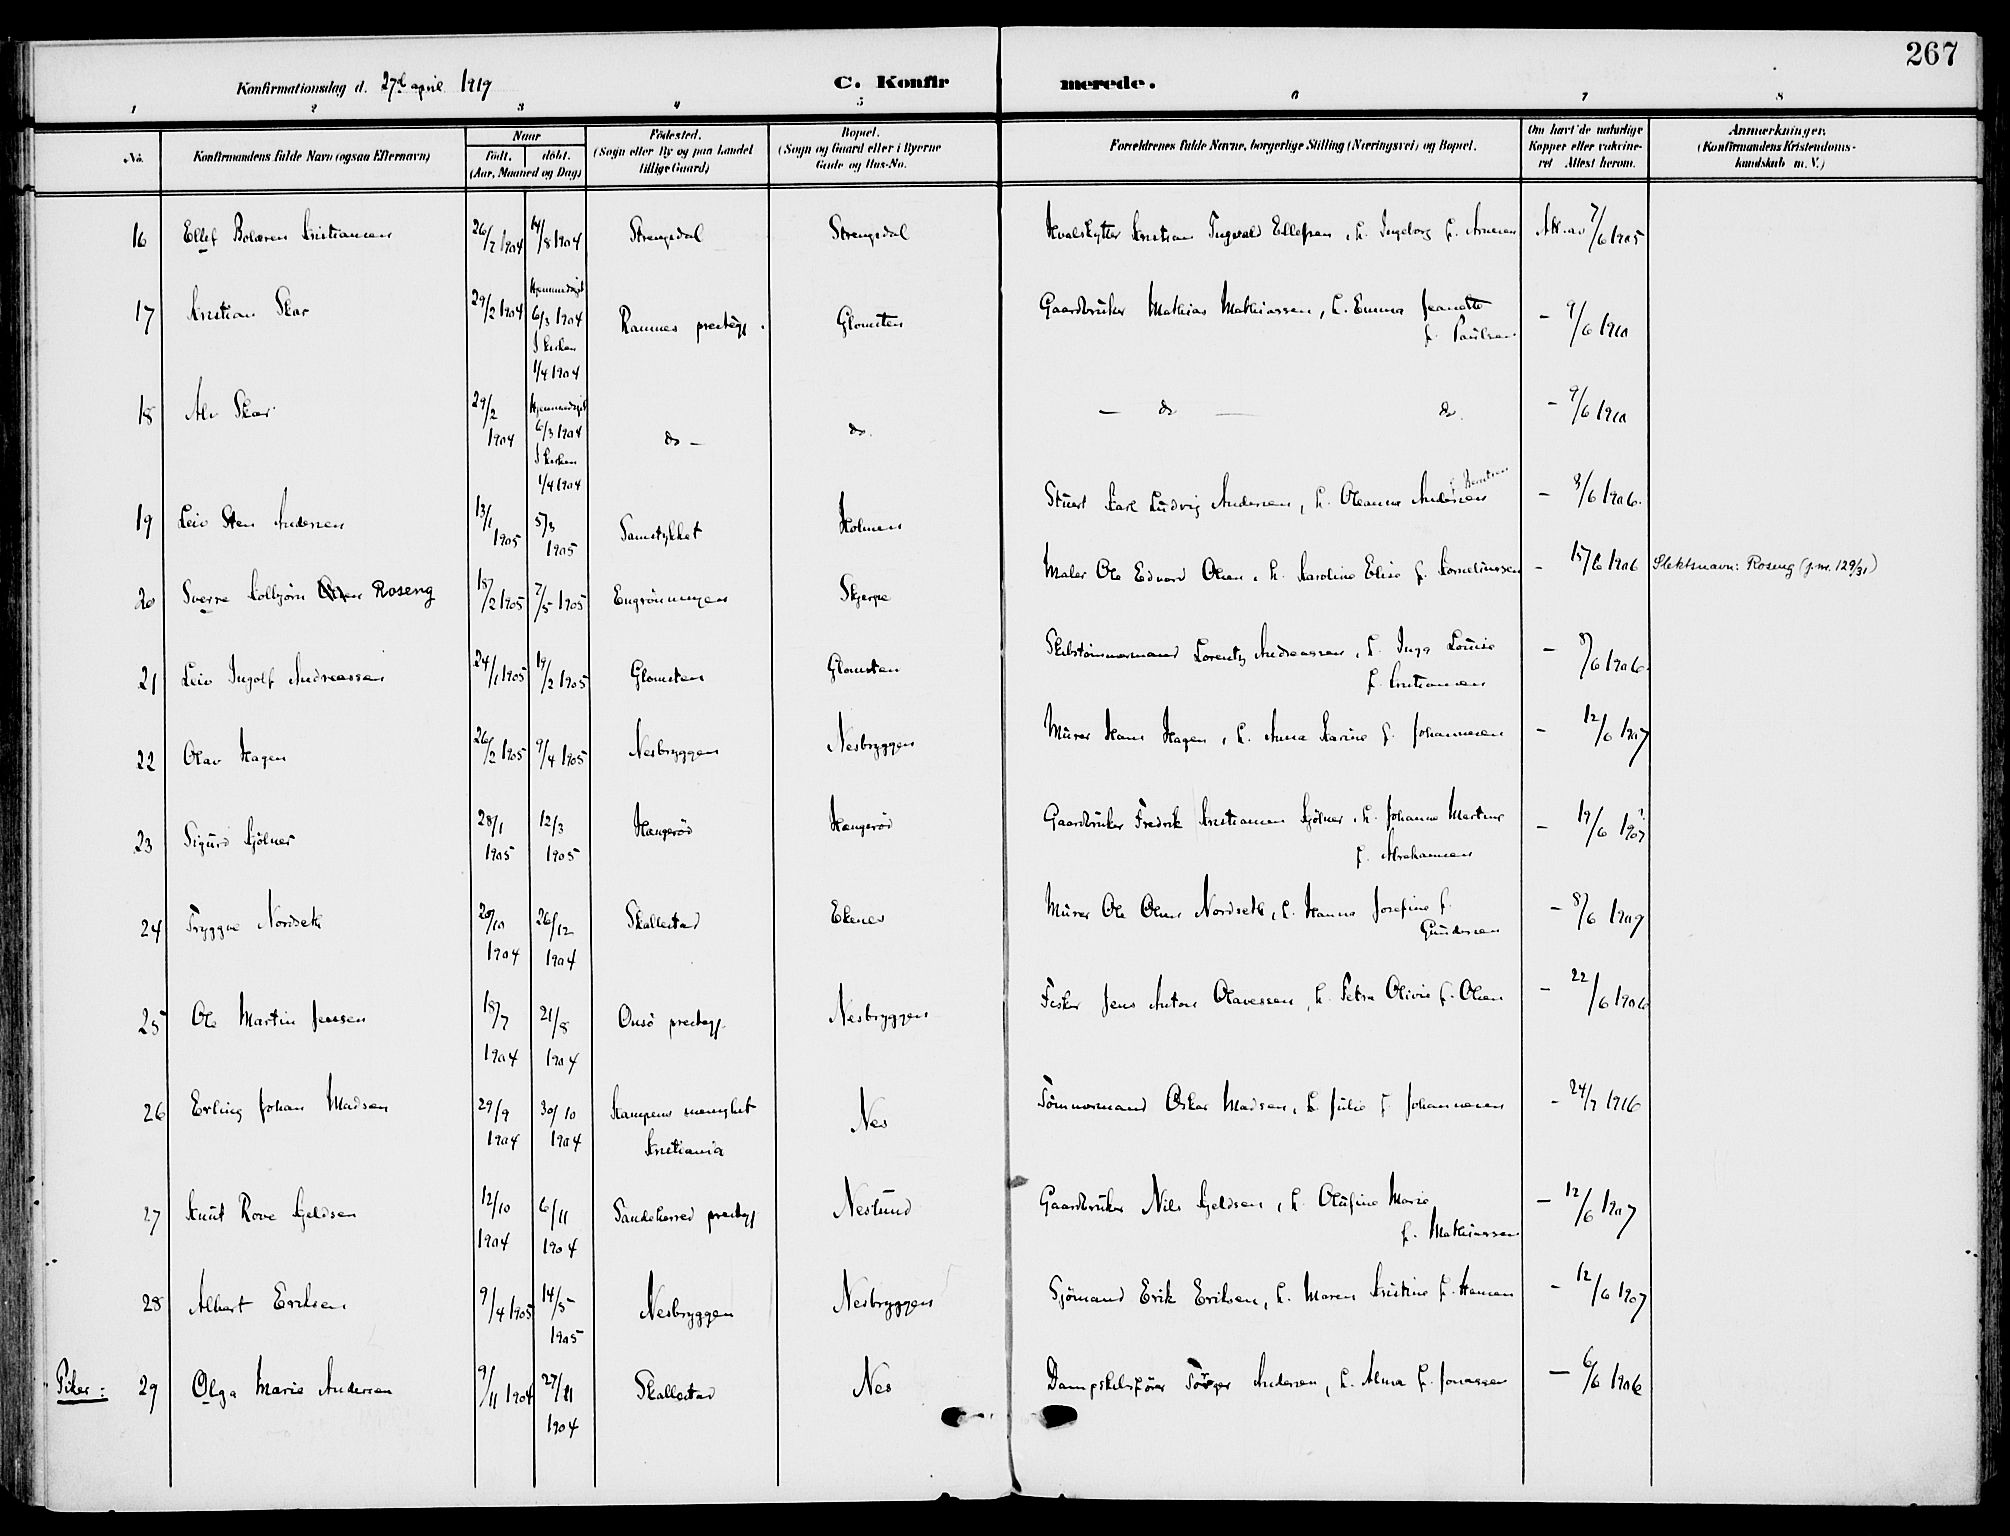 267
Konfirmationsdag d. 27de april 1919
C. Konfirmerede.
1 2 3 4 5 6 7 8
No. Konfirmandens fulde Navn (ogsaa Efternavn) Naar født. døbt. (Aar, Maaned og Dag) Fødested. (Sogn eller By og paa Landet tillige Gaard) Bopæl. (Sogn og Gaard eller i Byerne Gade og Hus-No. Forældrenes fulde Navne, borgerlige Stilling (Næringsvei) og Bopæl. Om havt de naturlige Kopper eller vakcineret Attest herom. Anmærkninger. (Konfirmandens Kristendomskundskab m. V.)
16 Ellef Bolæren Kristiansen 26/7 1904 14/8 1904 Strengsdal Strengsdal Hvalskytter Kristian Ingvald Ellefsen, h. Ingeborg f. Arnesen Att. av 7/6 1905
17 Kristian Skar 29/2 1904 Hjemmedøpt 6/3 1904 I kirken 1/4 1904 Ramnes prestegj. Glomsten Gaardbruker Mathias Mathiassen, h. Emma Jeanette
f. Paulsen - 9/6 1910
18 Alv Skar 29/2 1904 Hjemmedøpt 6/3 1904 I kirken 1/4 1904 do - do. - do - do. - 9/6 1910
19 Leiv Sten Andersen 13/1 1905 5/3 1905 Samstykket Holmen Stuert Karl Ludvig Andersen, h. Oleanna Andersen f. Berntsen - 8/6 1906.
20 Sverre Kolbjørn Olsen Roseng 18/2 1905 7/5 1905 Engrønningen Skjerpe Maler Ole Edvard Olsen, h. Karoline Elise f. Kornelinssen - 15/6 1906 Slektsnavn: Roseng (j.nr. 129/31)
21 Leiv Ingolf Andreassen 24/1 1905 19/2 1905 Glomsten Glomsten Skibstømmermand Lorentz Andreassen, h. Inga Louise
f. Kristiansen - 8/6 1906.
22 Olav Hagen 26/2 1905 9/4 1905 Nesbryggen Nesbryggen Murer Hans Hagen, h. Anna Karine f. Johannesen - 12/6 1907
23 Sigurd Kjølner 28/1 1905 12/3 1905 Haugerød Haugerød Gaardbruker Fredrik Kristiansen Kjølner, h. Johanne Martine
f. Abrahamsen - 19/6 1907
24 Tryggve Nordseth 20/10 1904 26/12 1904 Skallestad Ekenes Murer Ole Olsen Nordseth, h. Hanna Josefine f.
Gundersen - 8/6 1909
25 Ole Martin Jensen 18/7 1904 21/8 1904 Onsø prestegj. Nesbryggen Fisker Jens Anton Olavessen, h. Petra Olivia f. Olsen - 22/6 1906
26 Erling Johan Madsen 29/9 1904 30/10 1904 Kampens menighet Kristiania Nes Tømmermand Oskar Madsen, h. Julie f. Johannesen - 24/7 1916
27 Knut Rove Kjeldsen 12/10 1904 6/11 1904 Sandeherred prestegj Neslund Gaardbruker Nils Kjeldsen, h. Olufine Marie
f. Mathiassen - 12/6 1907
28 Albert Eriksen 9/4 1905 14/5 1905 Nesbryggen Nesbryggen Sjømand Erik Eriksen, h. Maren Kristine f. Hansen - 12/6 1907
Piker: 29 Olga Marie Andersen 9/11 1904 27/11 1904 Skallestad Nes Dampskibsfører Torger Andersen, h. Alma f. Jonassen - 6/6 1906